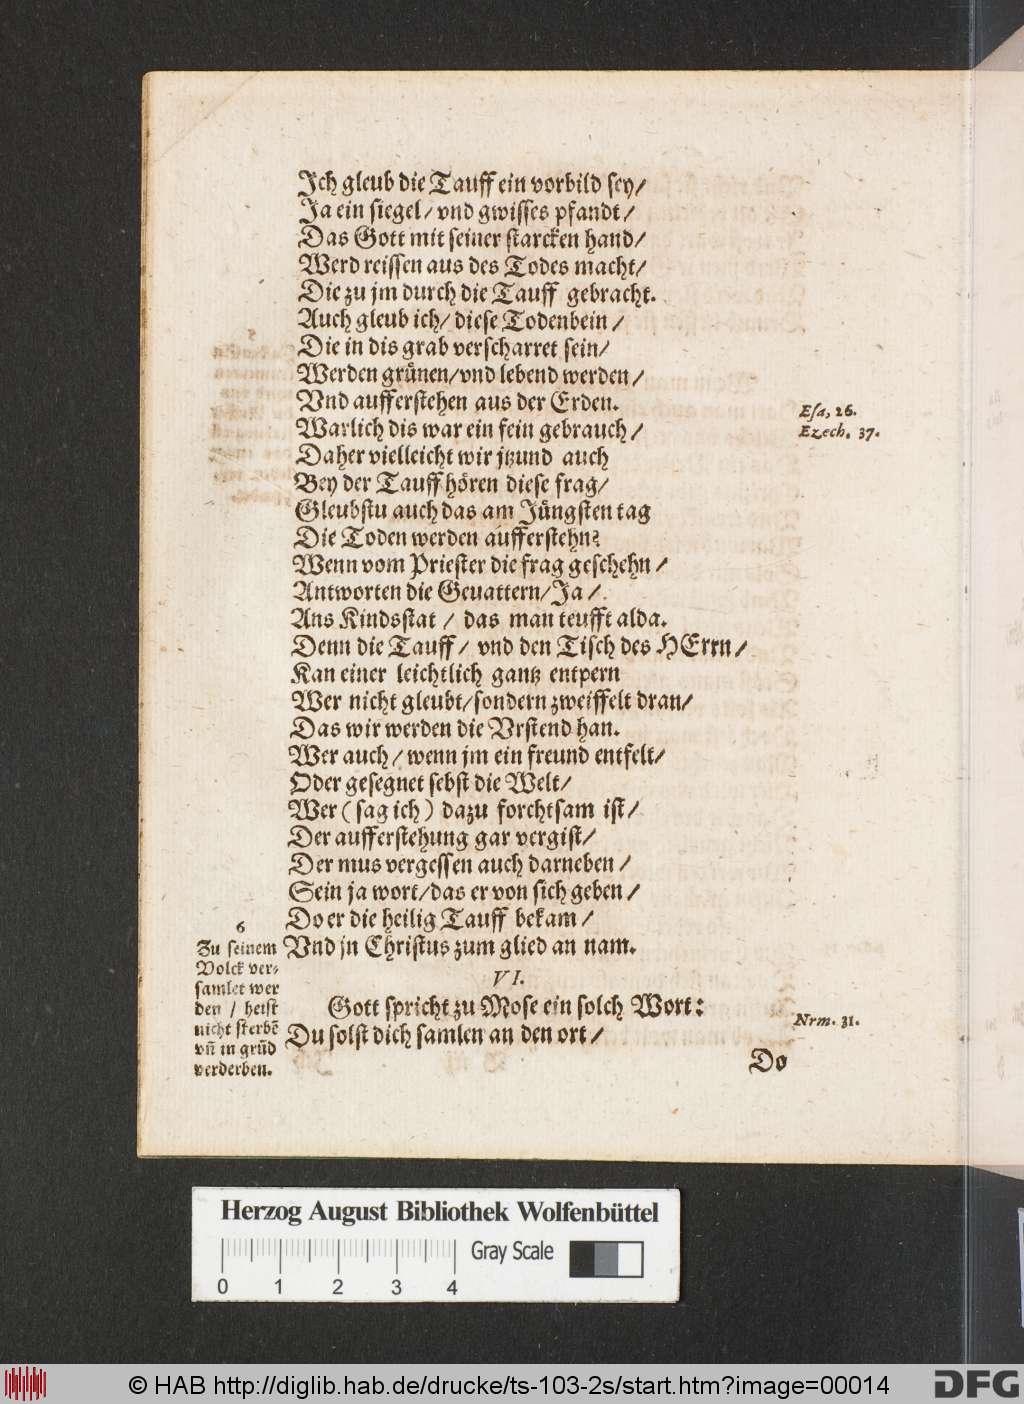 Ich gleub die Tauff ein vorbild sey/
Ja ein siegel/ vnd gwisses pfandt/
Das Gott mit seiner starcken hand/
Werd reissen aus des Todes macht/
Die zu jm durch die Tauff gebracht.
Auch gleub ich/ diese Todenbein/
Die in dis grab verscharret sein/
Werden grünen/vnd lebend werden/
Vnd aufferstehen aus der Erden.
Esa, 26.
Warlich dis war ein fein gebrauch/
Ezech. 37.
Daher vielleicht wir jtzund auch
Bey der Tauff hören diese frag/
Gleubstu auch das am Jüngsten tag
Die Toden werden aufferstehn?
Wenn vom Priester die frag geschehn/
Antworten die Geuattern/Ja/
Ans Kindsstat/ das man teufft alda.
Denn die Tauff/ vnd den Tisch des HErrn/
Kan einer leichtlich gantz entpern
Wer nicht gleubt/sondern zweiffelt dran/
Das wir werden die Vrstend han.
Wer auch/ wenn jm ein freund entfelt/
Oder gesegnet sebst die Welt/
Wer (sag ich) dazu forchtsam ist/
Der aufferstehung gar vergist/
Der mus vergessen auch darneben/
Sein ja wort/das er von sich geben/
Do er die heilig Tauff bekam/
Vnd jn Christus zum glied an nam.
6
Zu seinem
Volck ver-
samlet wer
den / heist
nicht sterbē
vñ in grūd
verderben.
VI.
Gott spricht zu Mose ein solch Wort:
Nrm. 31.
Du solst dich samlen an den ort/
Do
Herzog August Bibliothek Wolfenbüttel
0 1 2 3 4
Gray Scale
© HAB http://diglib.hab.de/drucke/ts-103-2s/start.htm?image=00014
DFG